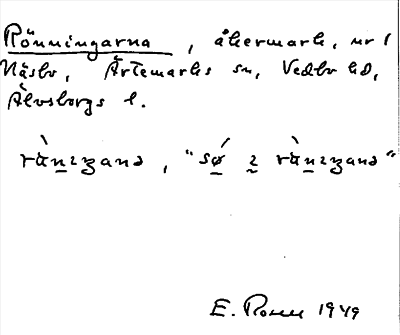 Rönningarna, åkermark, nr 1
Näsbo, Ärtemarks sn, Vedbo hd,
Älvsborgs l.
rànıʒana, "sǿ ı rànıʒana"
E. Rosell 1949